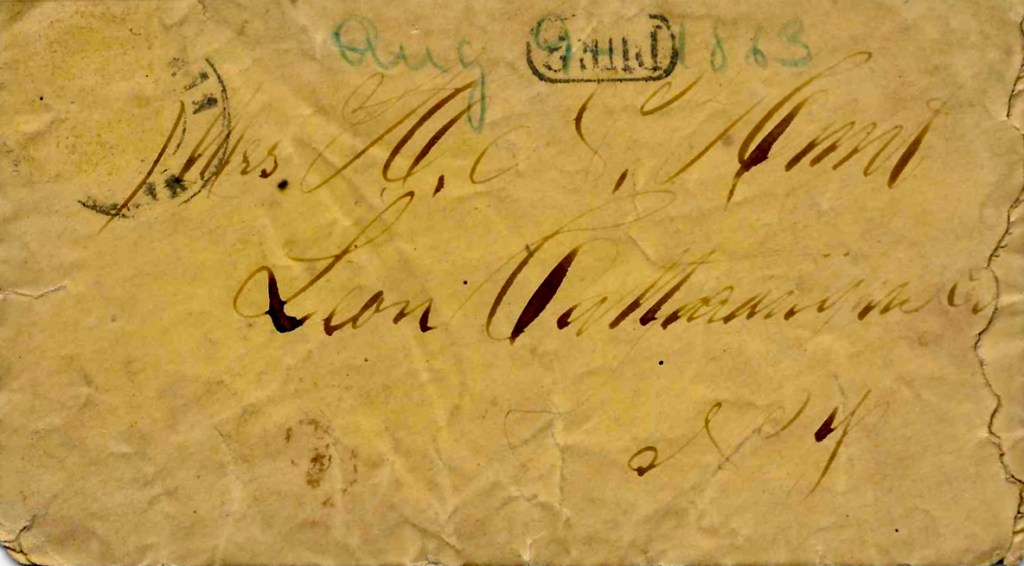 Aug 9 1863
Mrs. H. C. S. Hunt
Leon Cattaraugus Co
N Y